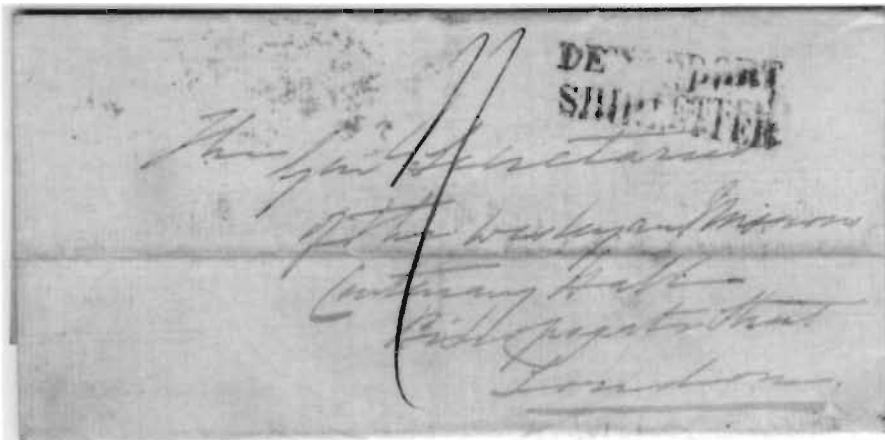 DEVONPORT
SHIP LETTER
The Gen'l Secretaries
of the Wesleyan Missions
Centenary Hall
Bishopsgate Street
London